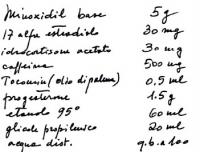 Minoxidil base 5 g
17 alfa estradiolo 30 mg
idrocortisone acetato 30 mg
caffeina 500 mg
Tocomin (olio di palma) 0,5 ml
progesterone 1.5 g
etanolo 95° 60 ml
glicole propilenico 20 ml
acqua dist. q.b. a 100